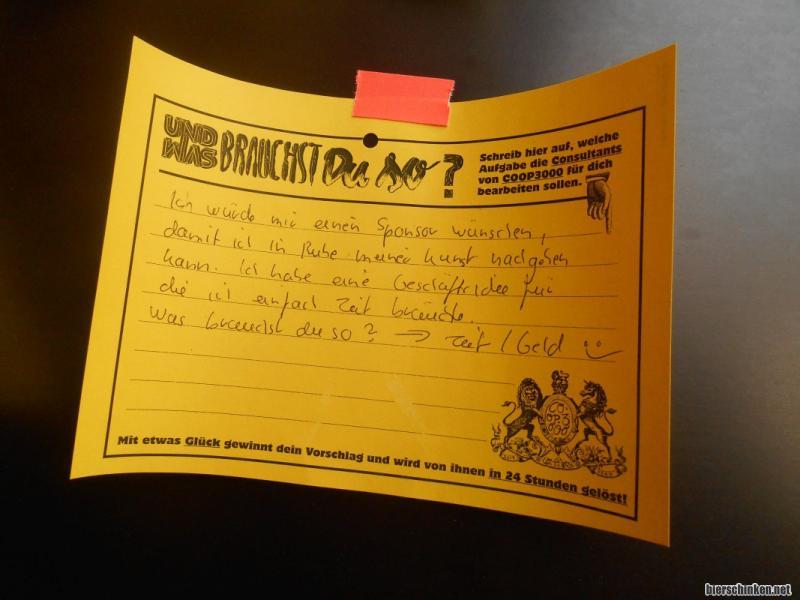 UND WAS BRAUCHST DU SO?
Schreib hier auf, welche
Aufgabe die Consultants
von COOP3000 für dich
bearbeiten sollen.
Ich würde mir einen Sponsor wünschen,
damit ich in Ruhe meiner Kunst nachgehen
kann. Ich habe eine Geschäftsidee für
die ich einfach Zeit bräuchte.
Was brauchst du so? → Zeit / Geld :)
CO
OP3
000
Mit etwas Glück gewinnt dein Vorschlag und wird von ihnen in 24 Stunden gelöst!
bierschinken.net